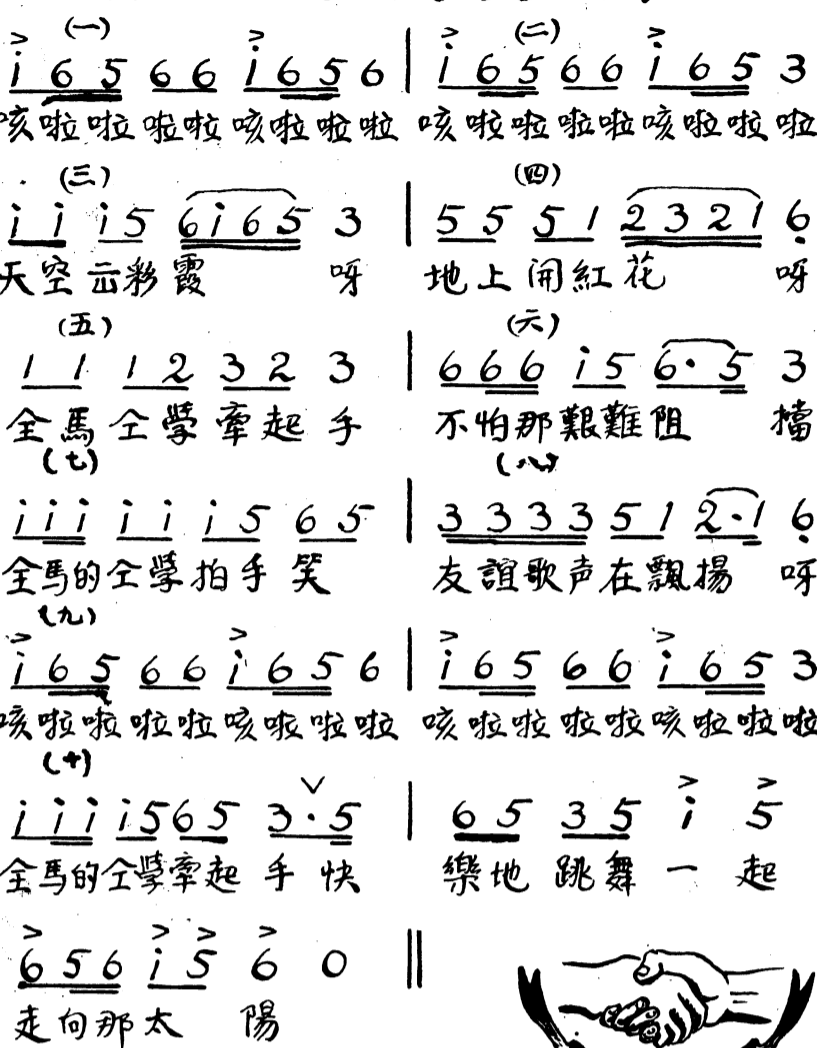 (一) (二)
i 6 5 6 6 i 6 5 6 | i 6 5 6 6 i 6 5 3
咳啦啦啦啦咳啦啦啦 咳啦啦啦啦咳啦啦啦
(三) (四)
i i i 5 6 i 6 5 3 | 5 5 5 1 2 3 2 1 6
天空出彩霞 呀 地上開紅花 呀
(五) (六)
1 1 1 2 3 2 3 | 6 6 6 i 5 6· 5 3
全馬仝學牽起手 不怕那艱難阻 擋
(七) (八)
i i i i i i 5 6 5 | 3 3 3 3 5 1 2·1 6
全馬的仝學拍手笑 友誼歌声在飄揚 呀
(九)
i 6 5 6 6 i 6 5 6 | i 6 5 6 6 i 6 5 3
咳啦啦啦啦咳啦啦啦 咳啦啦啦啦咳啦啦啦
(十)
i i i i 5 6 5 3·5 | 6 5 3 5 i 5
全馬的仝學牽起手快 樂地跳舞一起
6 5 6 i 5 6 0 ‖
走向那太陽